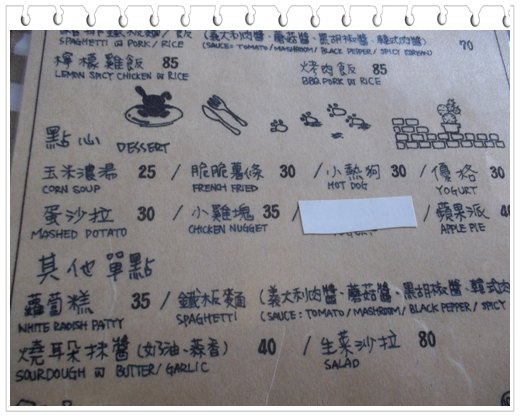 鐵板麵/飯 (義大利肉醬、蘑菇醬、黑胡椒醬、韓式肉醬)
SPAGHETTI W PORK/RICE (SAUCE: TOMATO/MASHROOM/BLACK PEPPER/SPICY KOREAN) 70
檸檬雞飯 85 烤肉飯 85
LEMON SPICY CHICKEN W RICE BBQ PORK W RICE
點心 DESSERT
玉米濃湯 25 / 脆脆薯條 30 / 小熱狗 30 / 優格 30
CORN SOUP FRENCH FRIED HOT DOG YOGURT
蛋沙拉 30 / 小雞塊 35 / 蘋果派 40
MASHED POTATO CHICKEN NUGGET APPLE PIE
其他單點
蘿蔔糕 35 / 鐵板麵 (義大利肉醬、蘑菇醬、黑胡椒醬、韓式肉
WHITE RADISH PATTY SPAGHETTI (SAUCE: TOMATO/MASHROOM/BLACK PEPPER/SPICY
燒朵抹醬 (奶油、蒜香) 40 / 生菜沙拉 80
SOURDOUGH W BUTTER/GARLIC SALAD